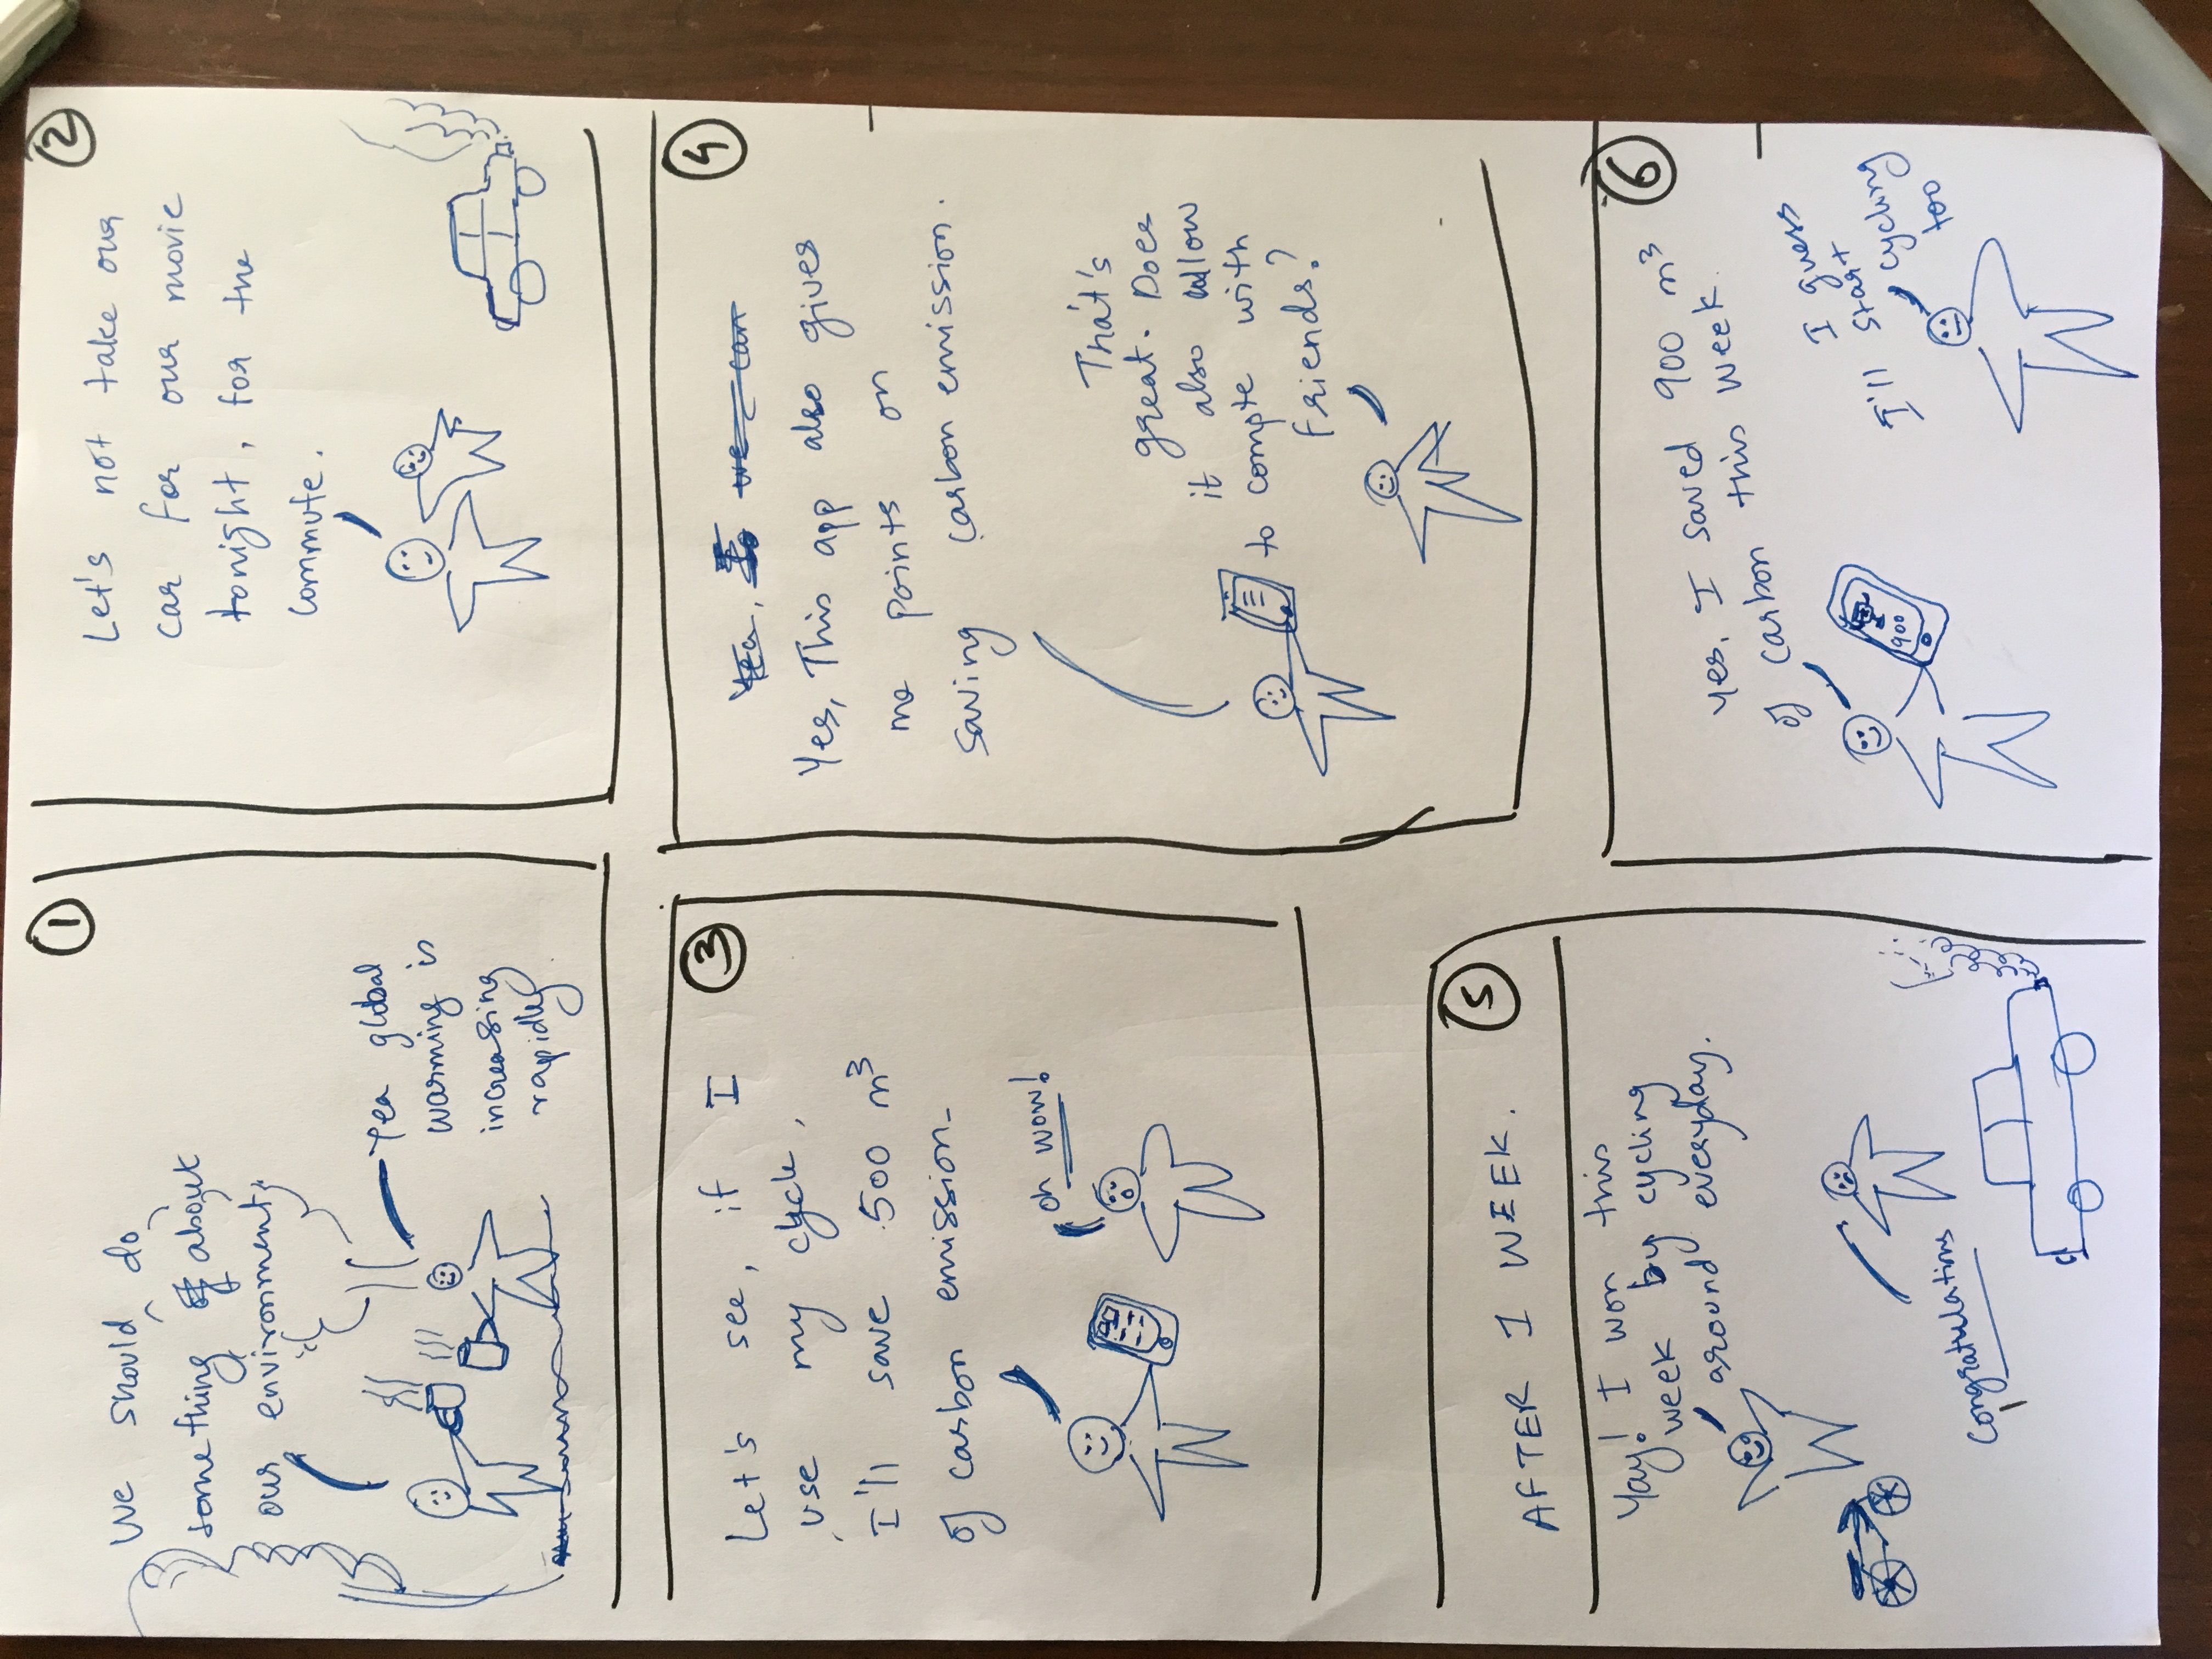 1
We should do
something about
our environment
Yea global
warming is
increasing
rapidly.
2
Let's not take our
car for our movie
tonight, for the
commute.
3
Let's see, if I
use my cycle,
I'll save 500 m³
of carbon emission-
oh wow!
4
Yea, we can
Yes, This app also gives
me points on
saving carbon emission.
That's
great. Does
it also allow
to compte with
friends?
5
AFTER 1 WEEK.
Yay! I won this
week by cycling
around everyday.
Congratulations
6
Yes, I saved 900 m³
of carbon this week.
900
I guess
I'll start
cycling
too